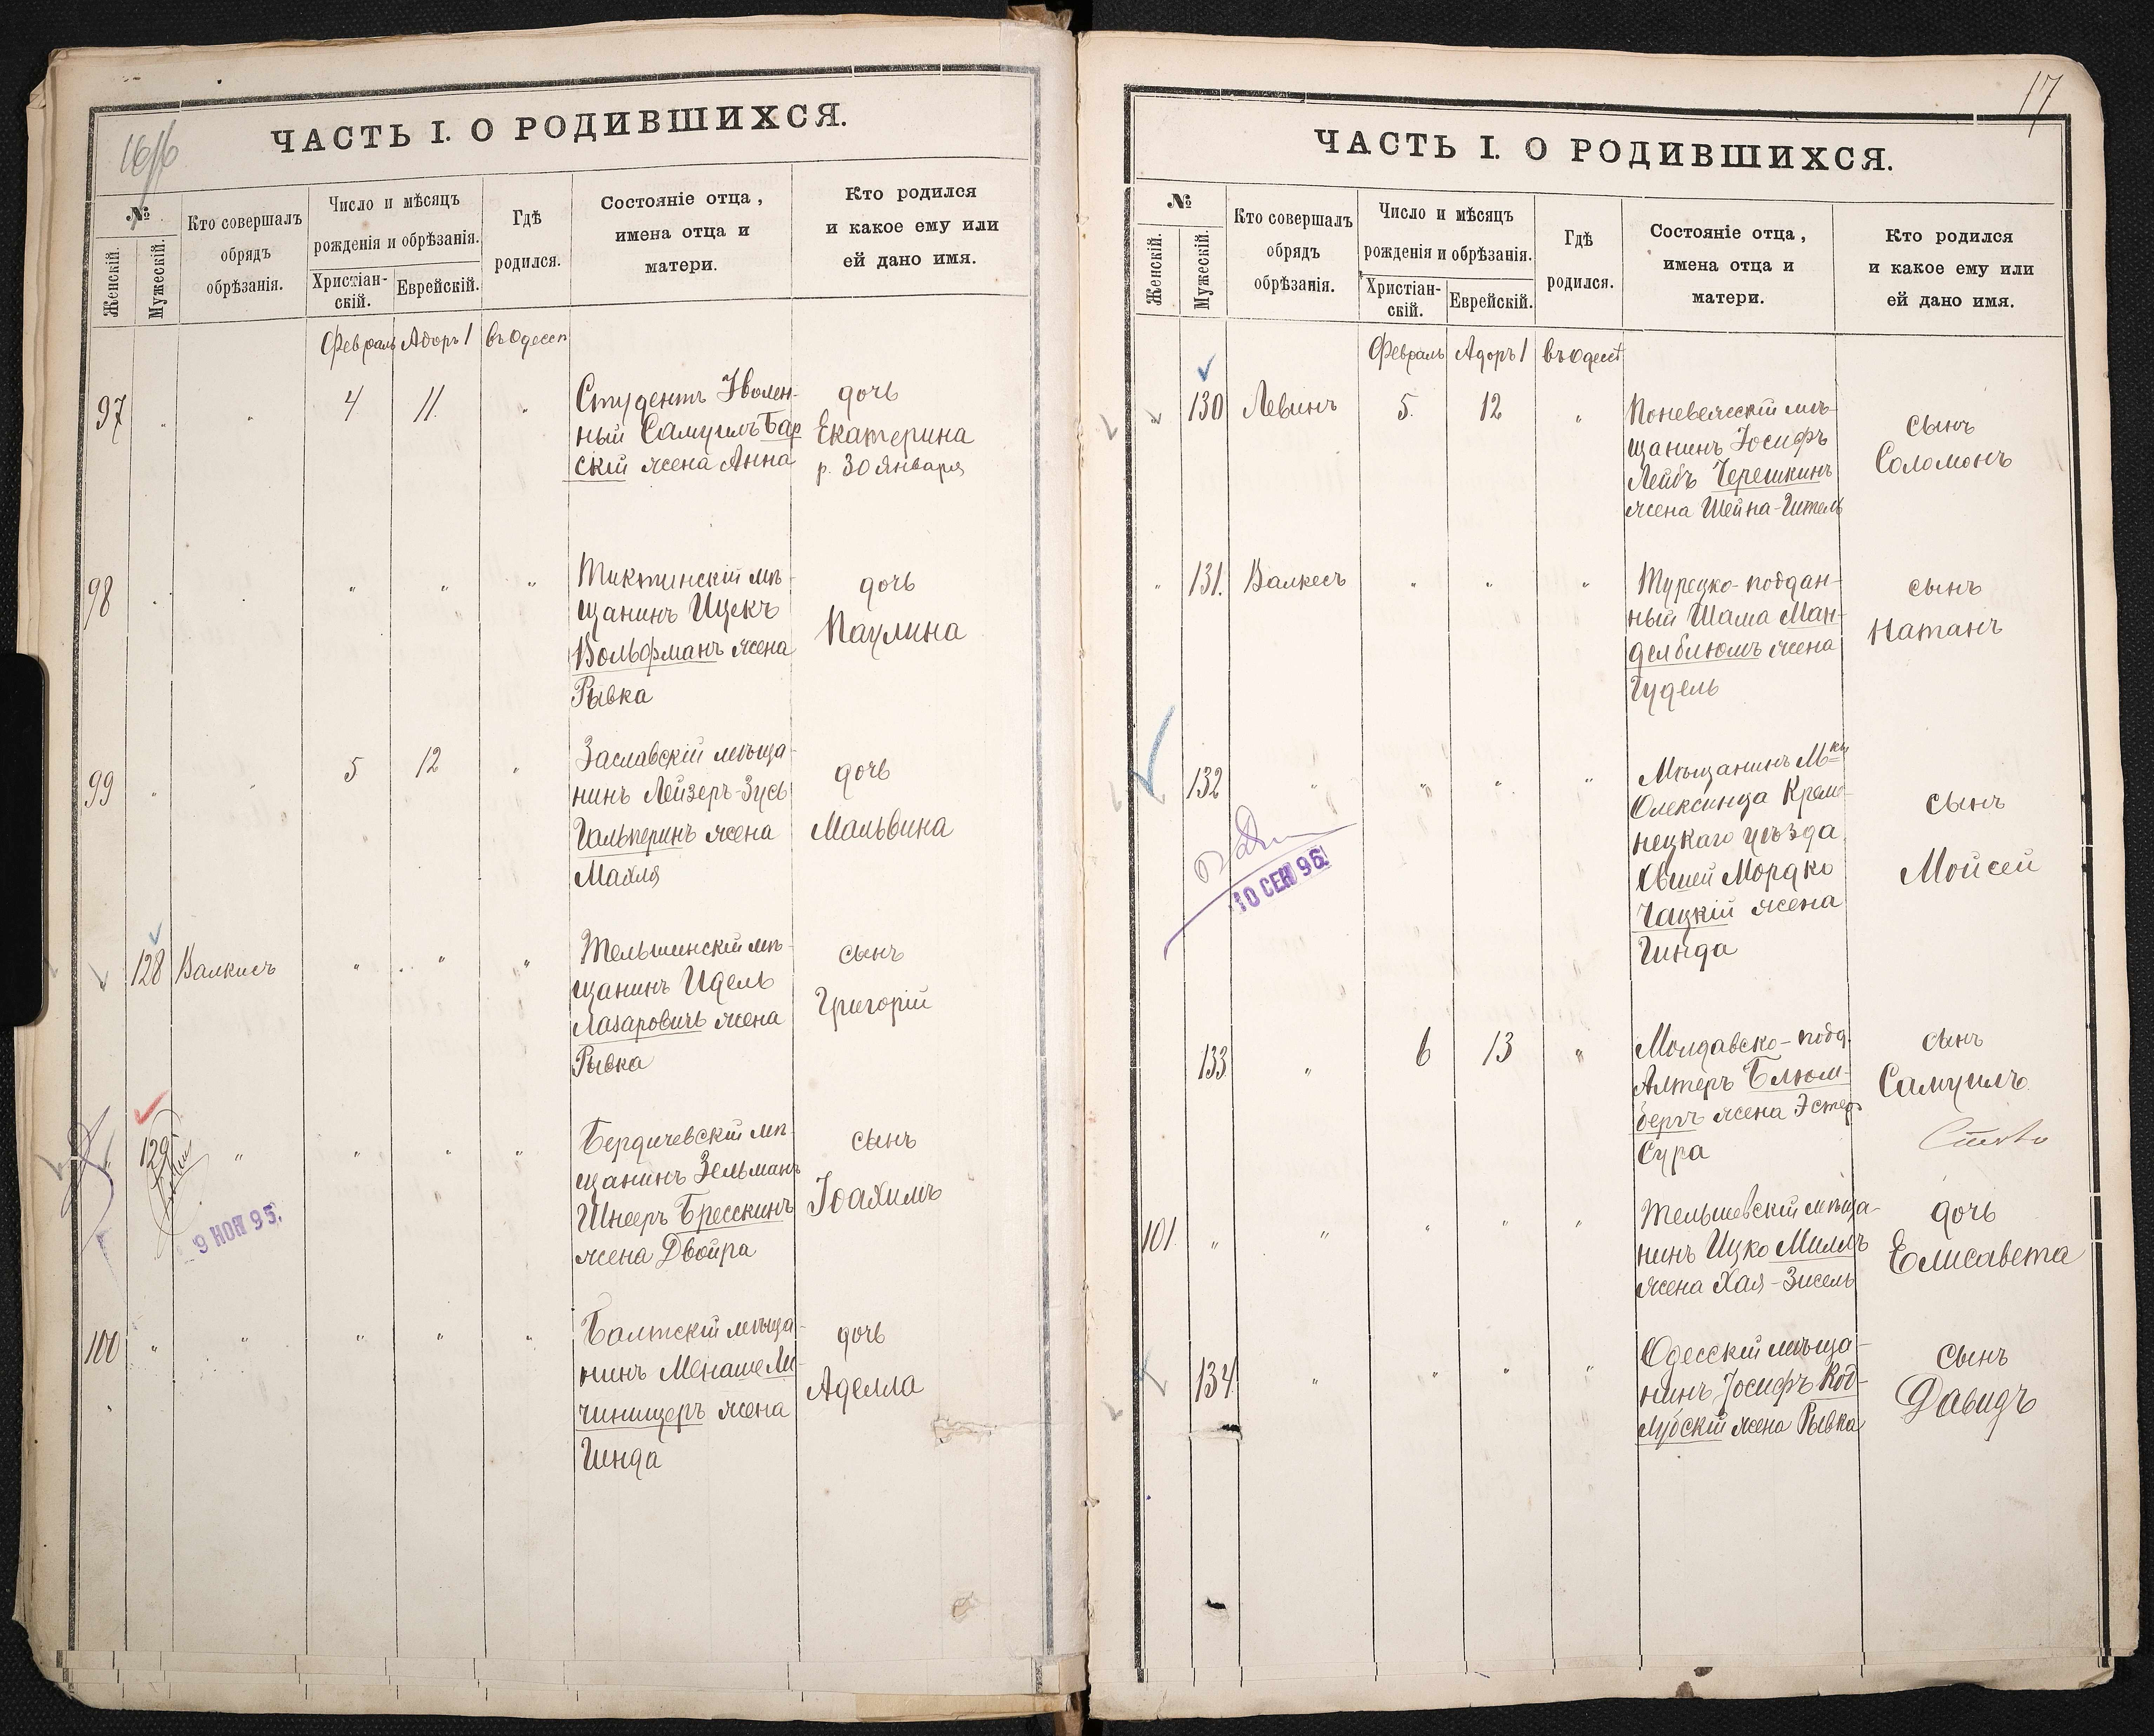 ЧАСТЬ I. О РОДИВШИХСЯ.
№
Женскій.
Мужескій.
Кто совершалъ
обрядъ
обрѣзанія.
Число и мѣсяцъ
рожденія и обрѣзанія.
Христіан-
скій.
Еврейскій.
Гдѣ
родился.
Состояніе отца,
имена отца и
матери.
Кто родился
и какое ему или
ей дано имя.
Февраль Адоръ 1 въ Одессѣ
97 " " 4 11. "
Студентъ Уволен-
ный Самуилъ Бар
скій жена Анна
дочь
Екатерина
р. 30 Января
98 " " " " "
Тиктинскій мѣ-
щанинъ Ицекъ
Вольфманъ жена
Рывка
дочь
Паулина
99 " " 5 12 "
Заславскій мѣща-
нинъ Лейзеръ-Зусь
Гальперинъ жена
Махля
дочь
Мальвина
128 Валкисъ " " "
Тельшинскій мѣ-
щанинъ Идель
Лазаровичъ жена
Рывка
сынъ
Григорій
" 129 " " " "
Бердичевскій мѣ-
щанинъ Зельманъ
Шнееръ Бресскинъ
жена Двойра
сынъ
Іоахимъ
9 НОЯ 95.
100 " " " " "
Балтскій мѣща-
нинъ Менаше Ли-
чиницеръ жена
Гинда
дочь
Аделла
17
ЧАСТЬ I. О РОДИВШИХСЯ.
№
Женскій.
Мужескій.
Кто совершалъ
обрядъ
обрѣзанія.
Число и мѣсяцъ
рожденія и обрѣзанія.
Христіан-
скій.
Еврейскій.
Гдѣ
родился.
Состояніе отца,
имена отца и
матери.
Кто родился
и какое ему или
ей дано имя.
Февраль Адоръ 1 въ Одессѣ
" 130 Левинъ 5. 12 "
Поневежскій мѣ-
щанинъ Іосифъ
Лейбъ Черешкинъ
жена Шейна-Гитель
сынъ
Соломонъ
" 131. Валкесъ " " "
Турецко-поддан-
ный Шама Ман-
делблюмъ жена
Гудель
сынъ
Натанъ
132 " " " "
Мѣщанинъ М-ка
Олексинца Креме-
нецкаго уѣзда
Овшей Мордко
Чацкій жена
Гинда
сынъ
Мойсей
10 СЕН 96
133 " 6 13 "
Молдавско-подд.
Алтеръ Блюм-
бергъ жена Эстеръ
Сура
сынъ
Самуилъ
101. " " " " "
Тельшевскій мѣща-
нинъ Ицко Миллъ
жена Хая-Зисель
дочь
Елисавета
134 " " " "
Одесскій мѣща-
нинъ Іосифъ Код-
лубскій жена Рывка
сынъ
Давидъ